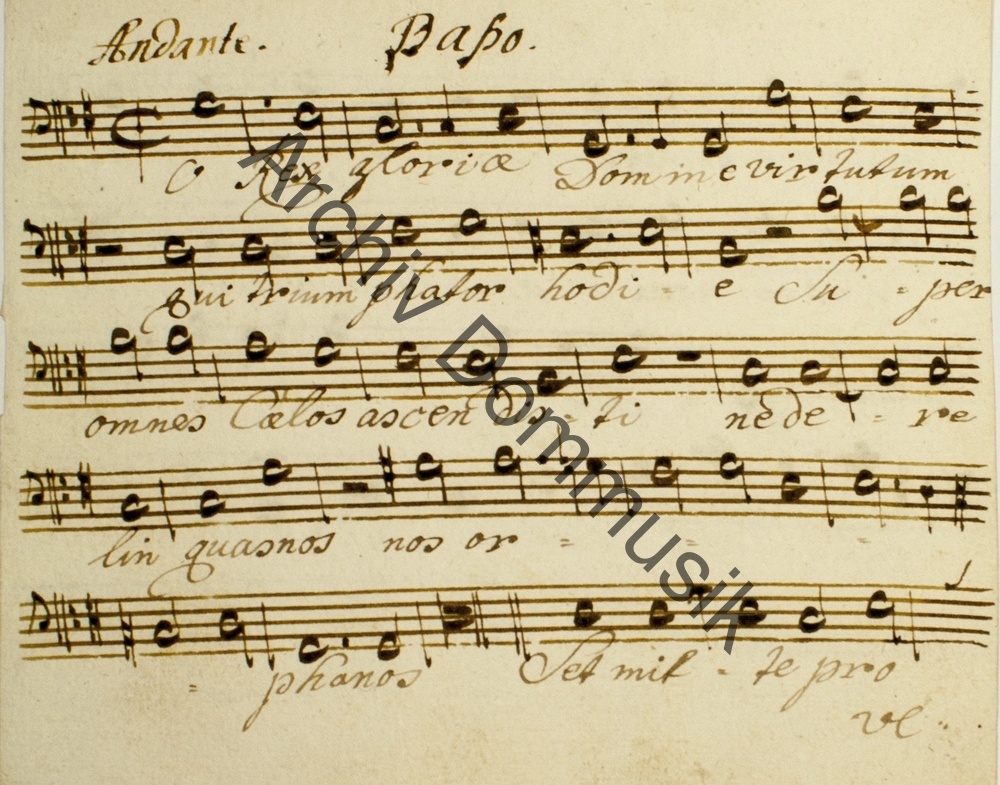 Andante. Baßo.
O Rex gloriæ Domine virtutum
qui trium phator hodi - e Su - per
omnes Cælos ascendis - ti nede - re
lin quasnos nos or - - -
- phanos Set mit - te pro
Archiv Dommusik